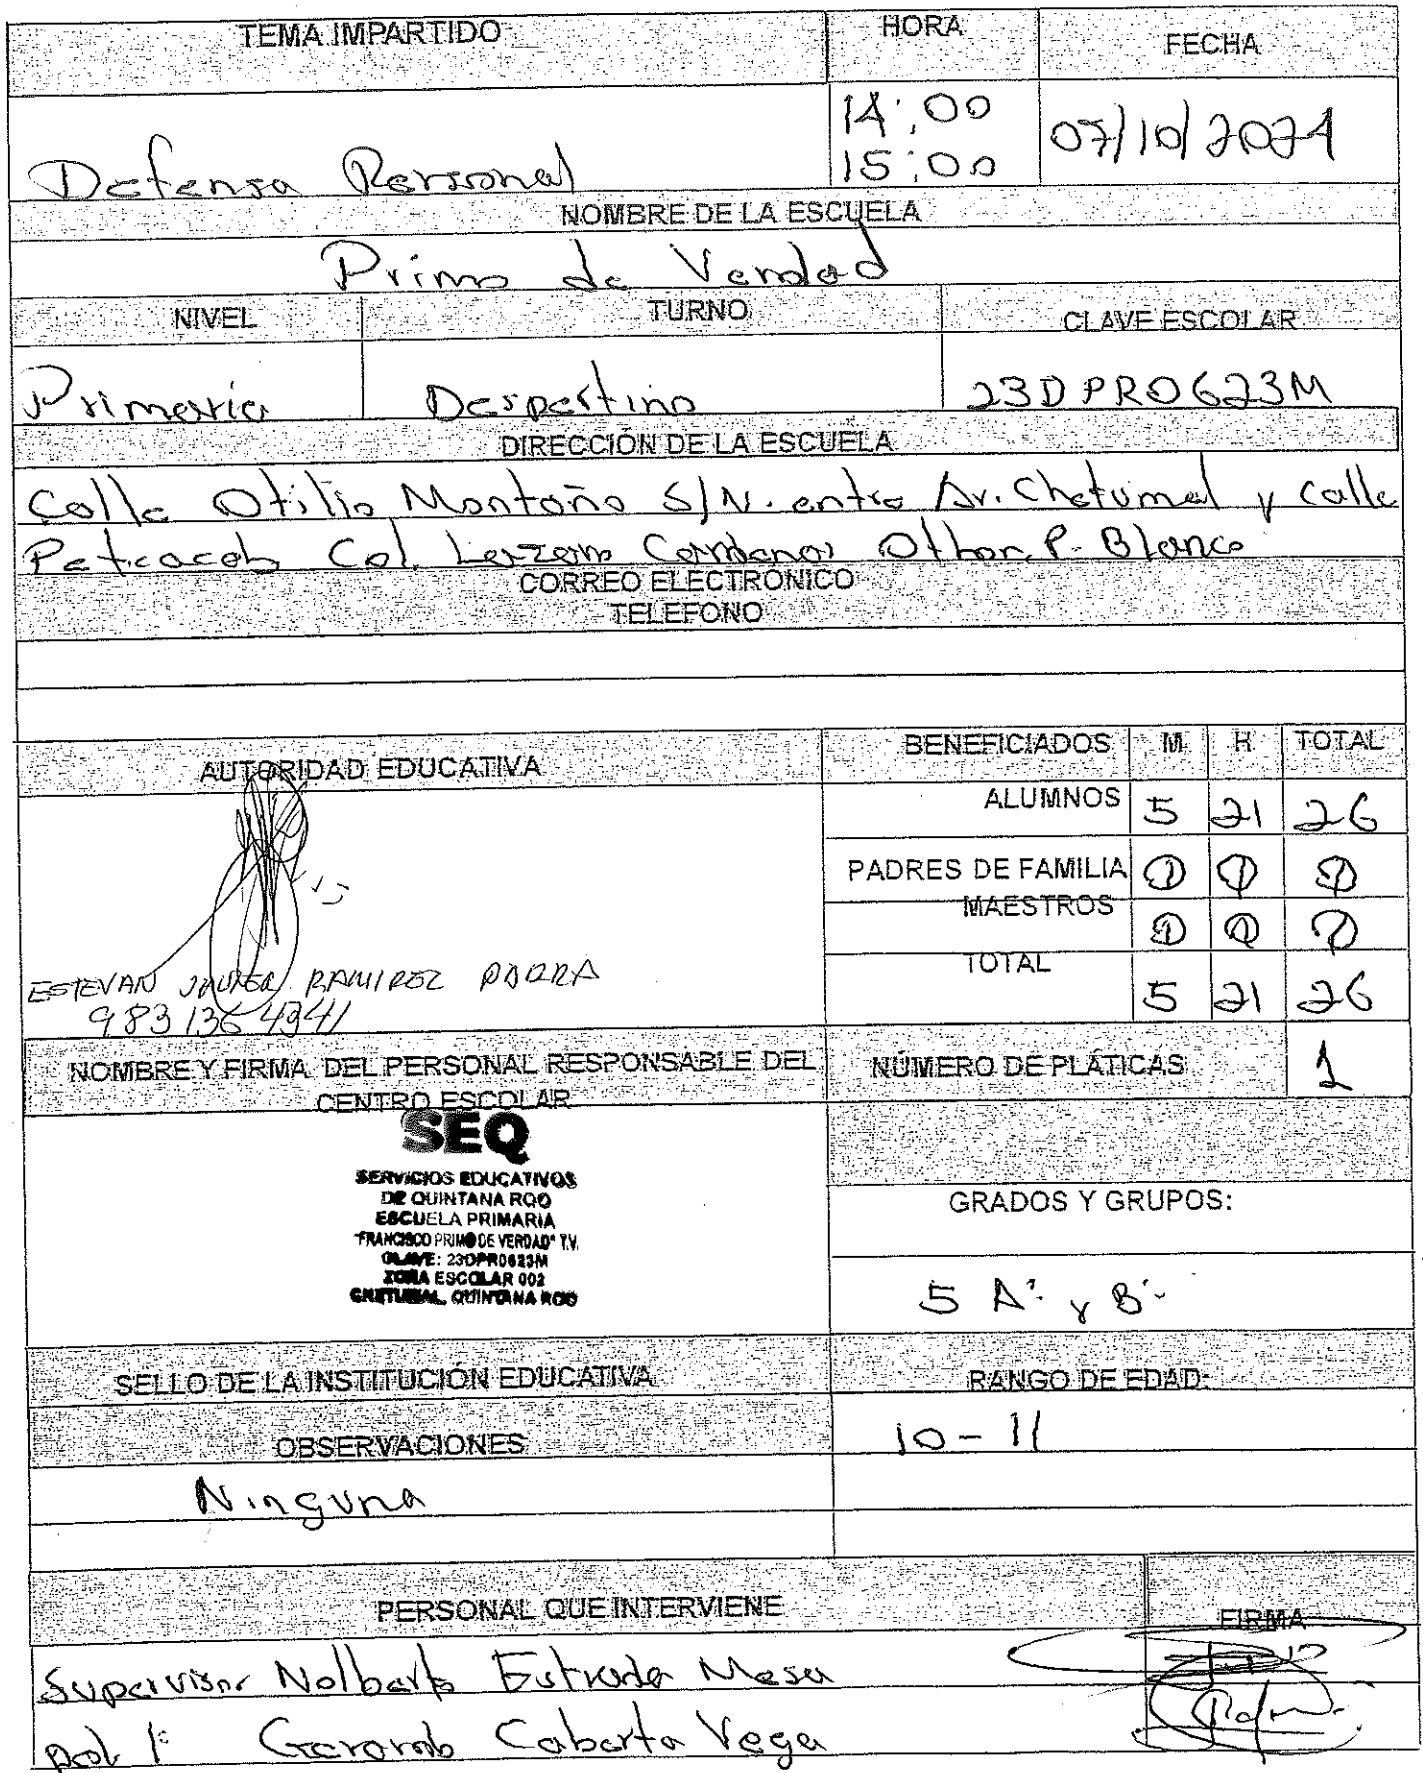 TEMA IMPARTIDO HORA FECHA
14:00
15:00
07/10/2024
Defensa Personal
NOMBRE DE LA ESCUELA
Primo de Verdad
NIVEL TURNO CLAVE ESCOLAR
Primaria Despertino 23DPR0623M
DIRECCIÓN DE LA ESCUELA
Calle Otilio Montaño S/N. entre Av. Chetumal y calle
Col. Lazaro Cardenas Othon P. Blanco
CORREO ELECTRÓNICO
TELEFONO
AUTORIDAD EDUCATIVA
BENEFICIADOS M H TOTAL
ALUMNOS 5 21 26
PADRES DE FAMILIA 0 0 0
MAESTROS 0 0 0
TOTAL 5 21 26
ESTEVAN JAVIER RAMIREZ PARRA
983 136 4941
NOMBRE Y FIRMA DEL PERSONAL RESPONSABLE DEL
CENTRO ESCOLAR
NÚMERO DE PLÁTICAS 1
SEQ
SERVICIOS EDUCATIVOS
DE QUINTANA ROO
ESCUELA PRIMARIA
"FRANCISCO PRIMO DE VERDAD" T.V.
CLAVE: 23DPR0623M
ZONA ESCOLAR 002
CHETUMAL, QUINTANA ROO
GRADOS Y GRUPOS:
5 A y B
SELLO DE LA INSTITUCIÓN EDUCATIVA
RANGO DE EDAD:
10 - 11
OBSERVACIONES
Ninguna
PERSONAL QUE INTERVIENE FIRMA
Supervisor Nolberto Estrada Mesa
pol 1: Gerardo Vega